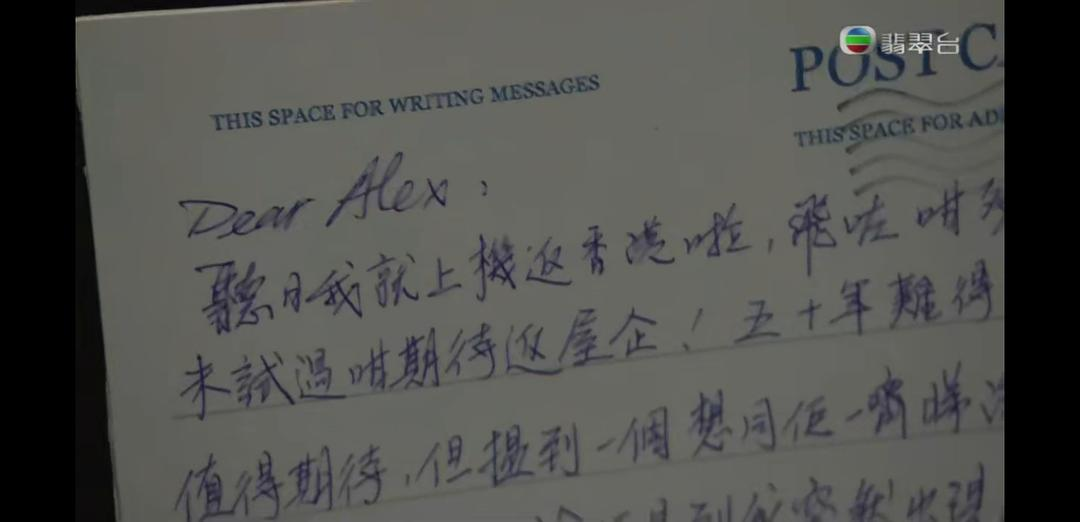 翡翠台
POST C
THIS SPACE FOR WRITING MESSAGES
THIS SPACE FOR AD
Dear Alex,
聽日我就上機返香港啦,飛咗咁
未試過咁期待返屋企!五十年難得
值得期待,但搵到一個想同佢一齊睇
到我突然出現